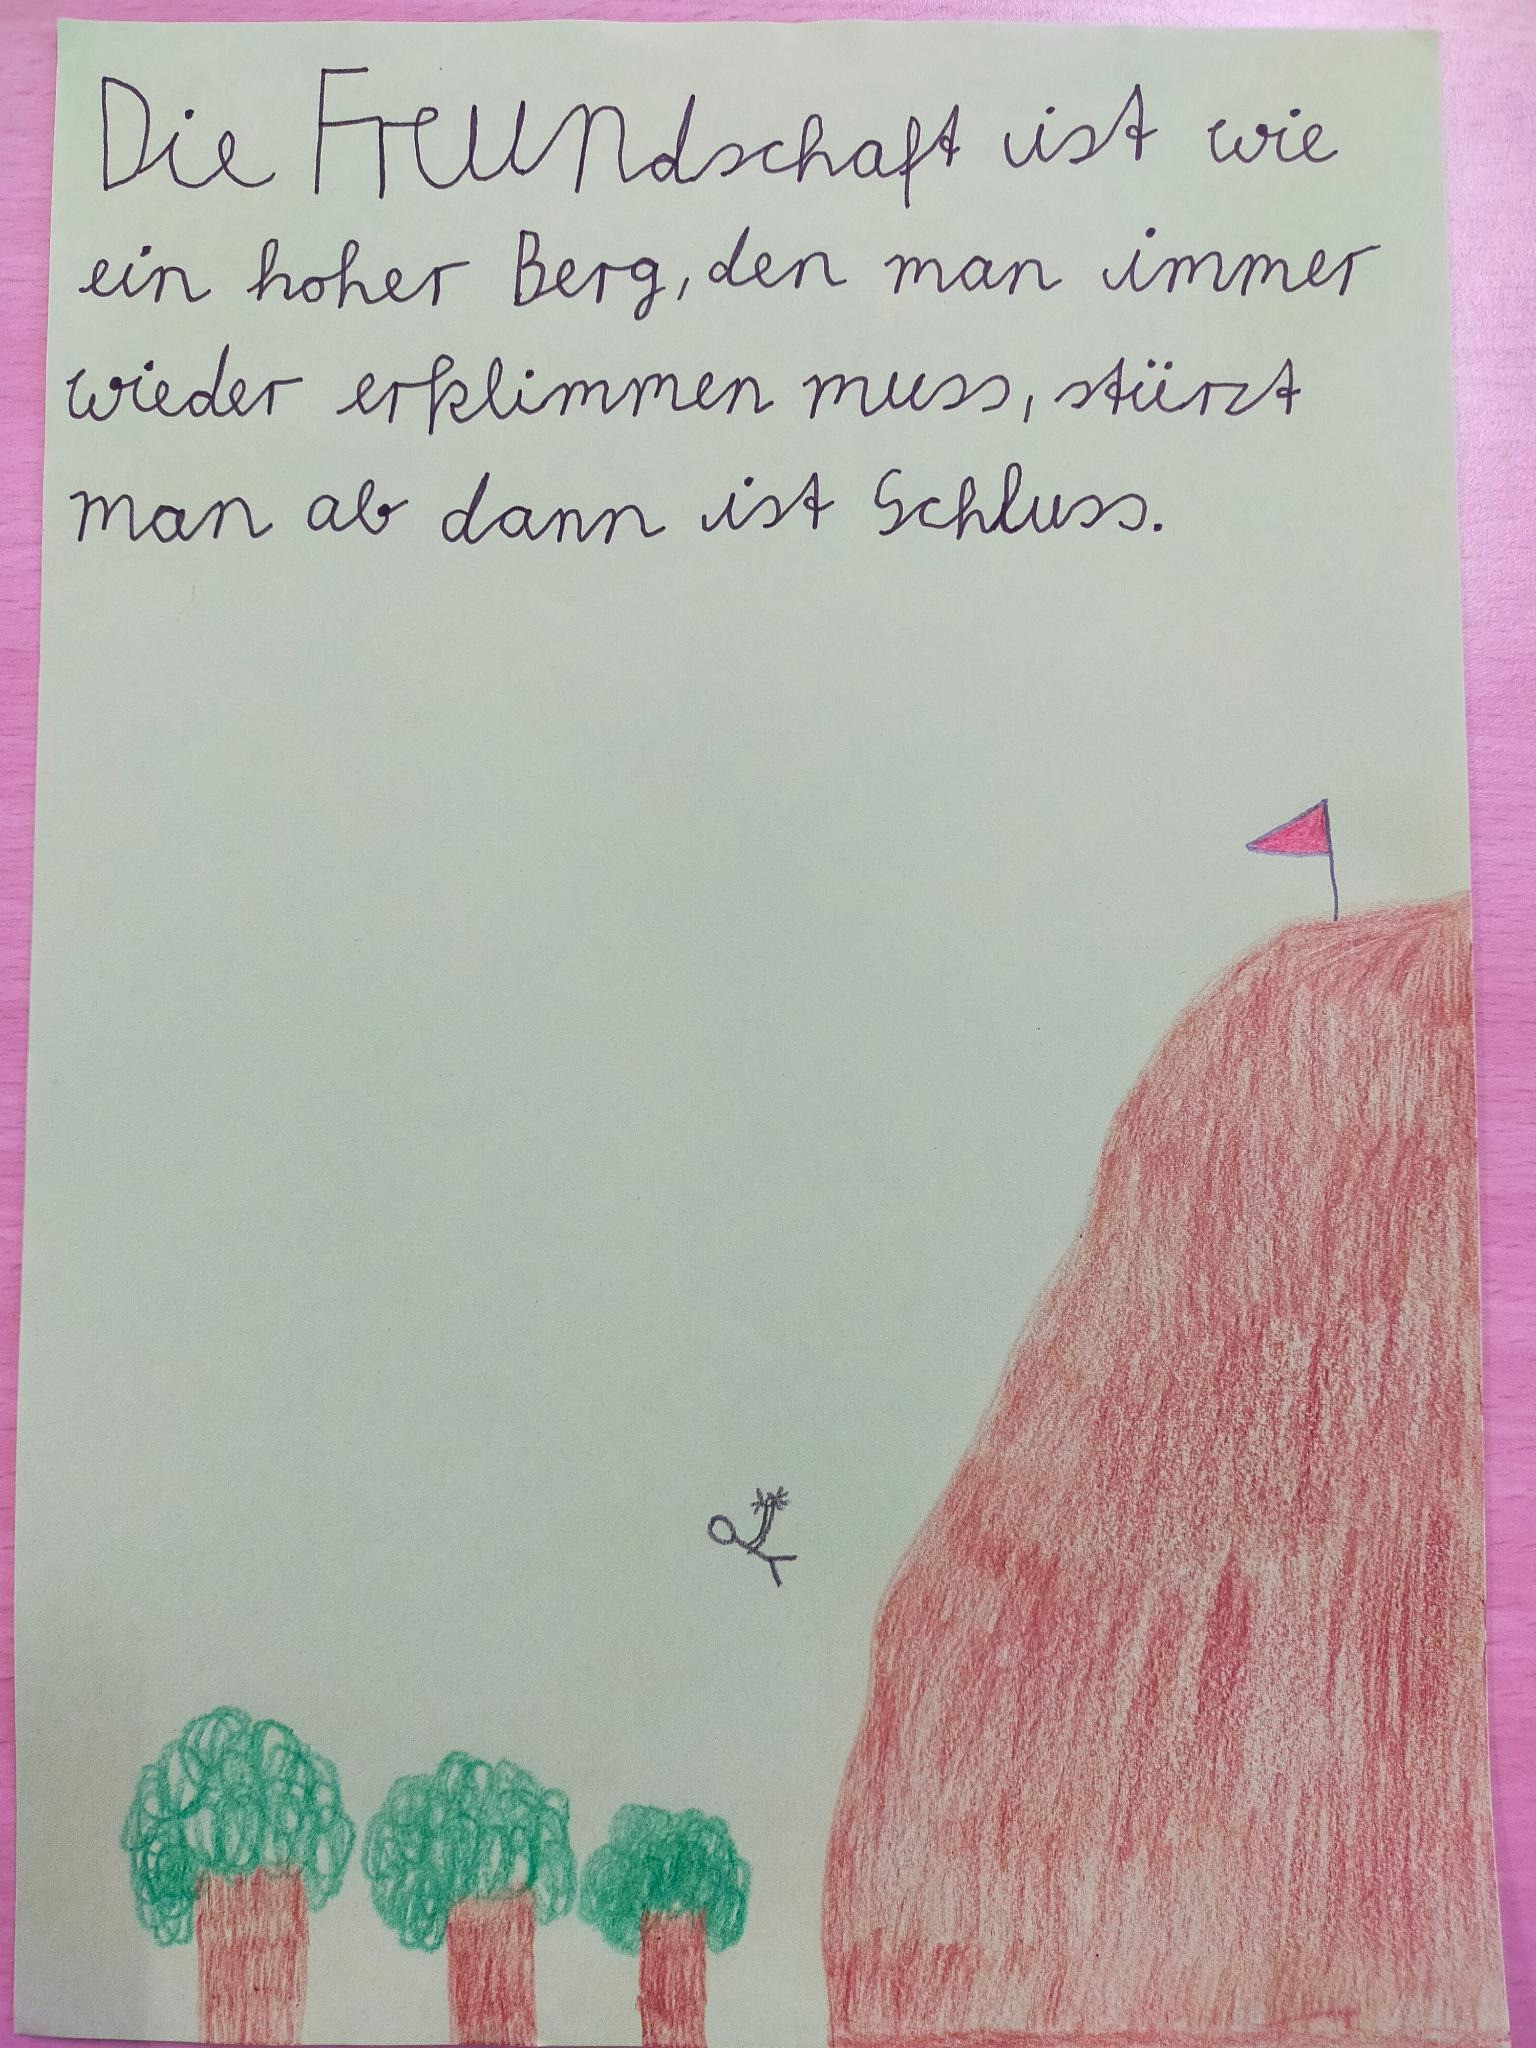 Die Freundschaft ist wie
ein hoher Berg, den man immer
wieder erklimmen muss, stürzt
man ab dann ist Schluss.